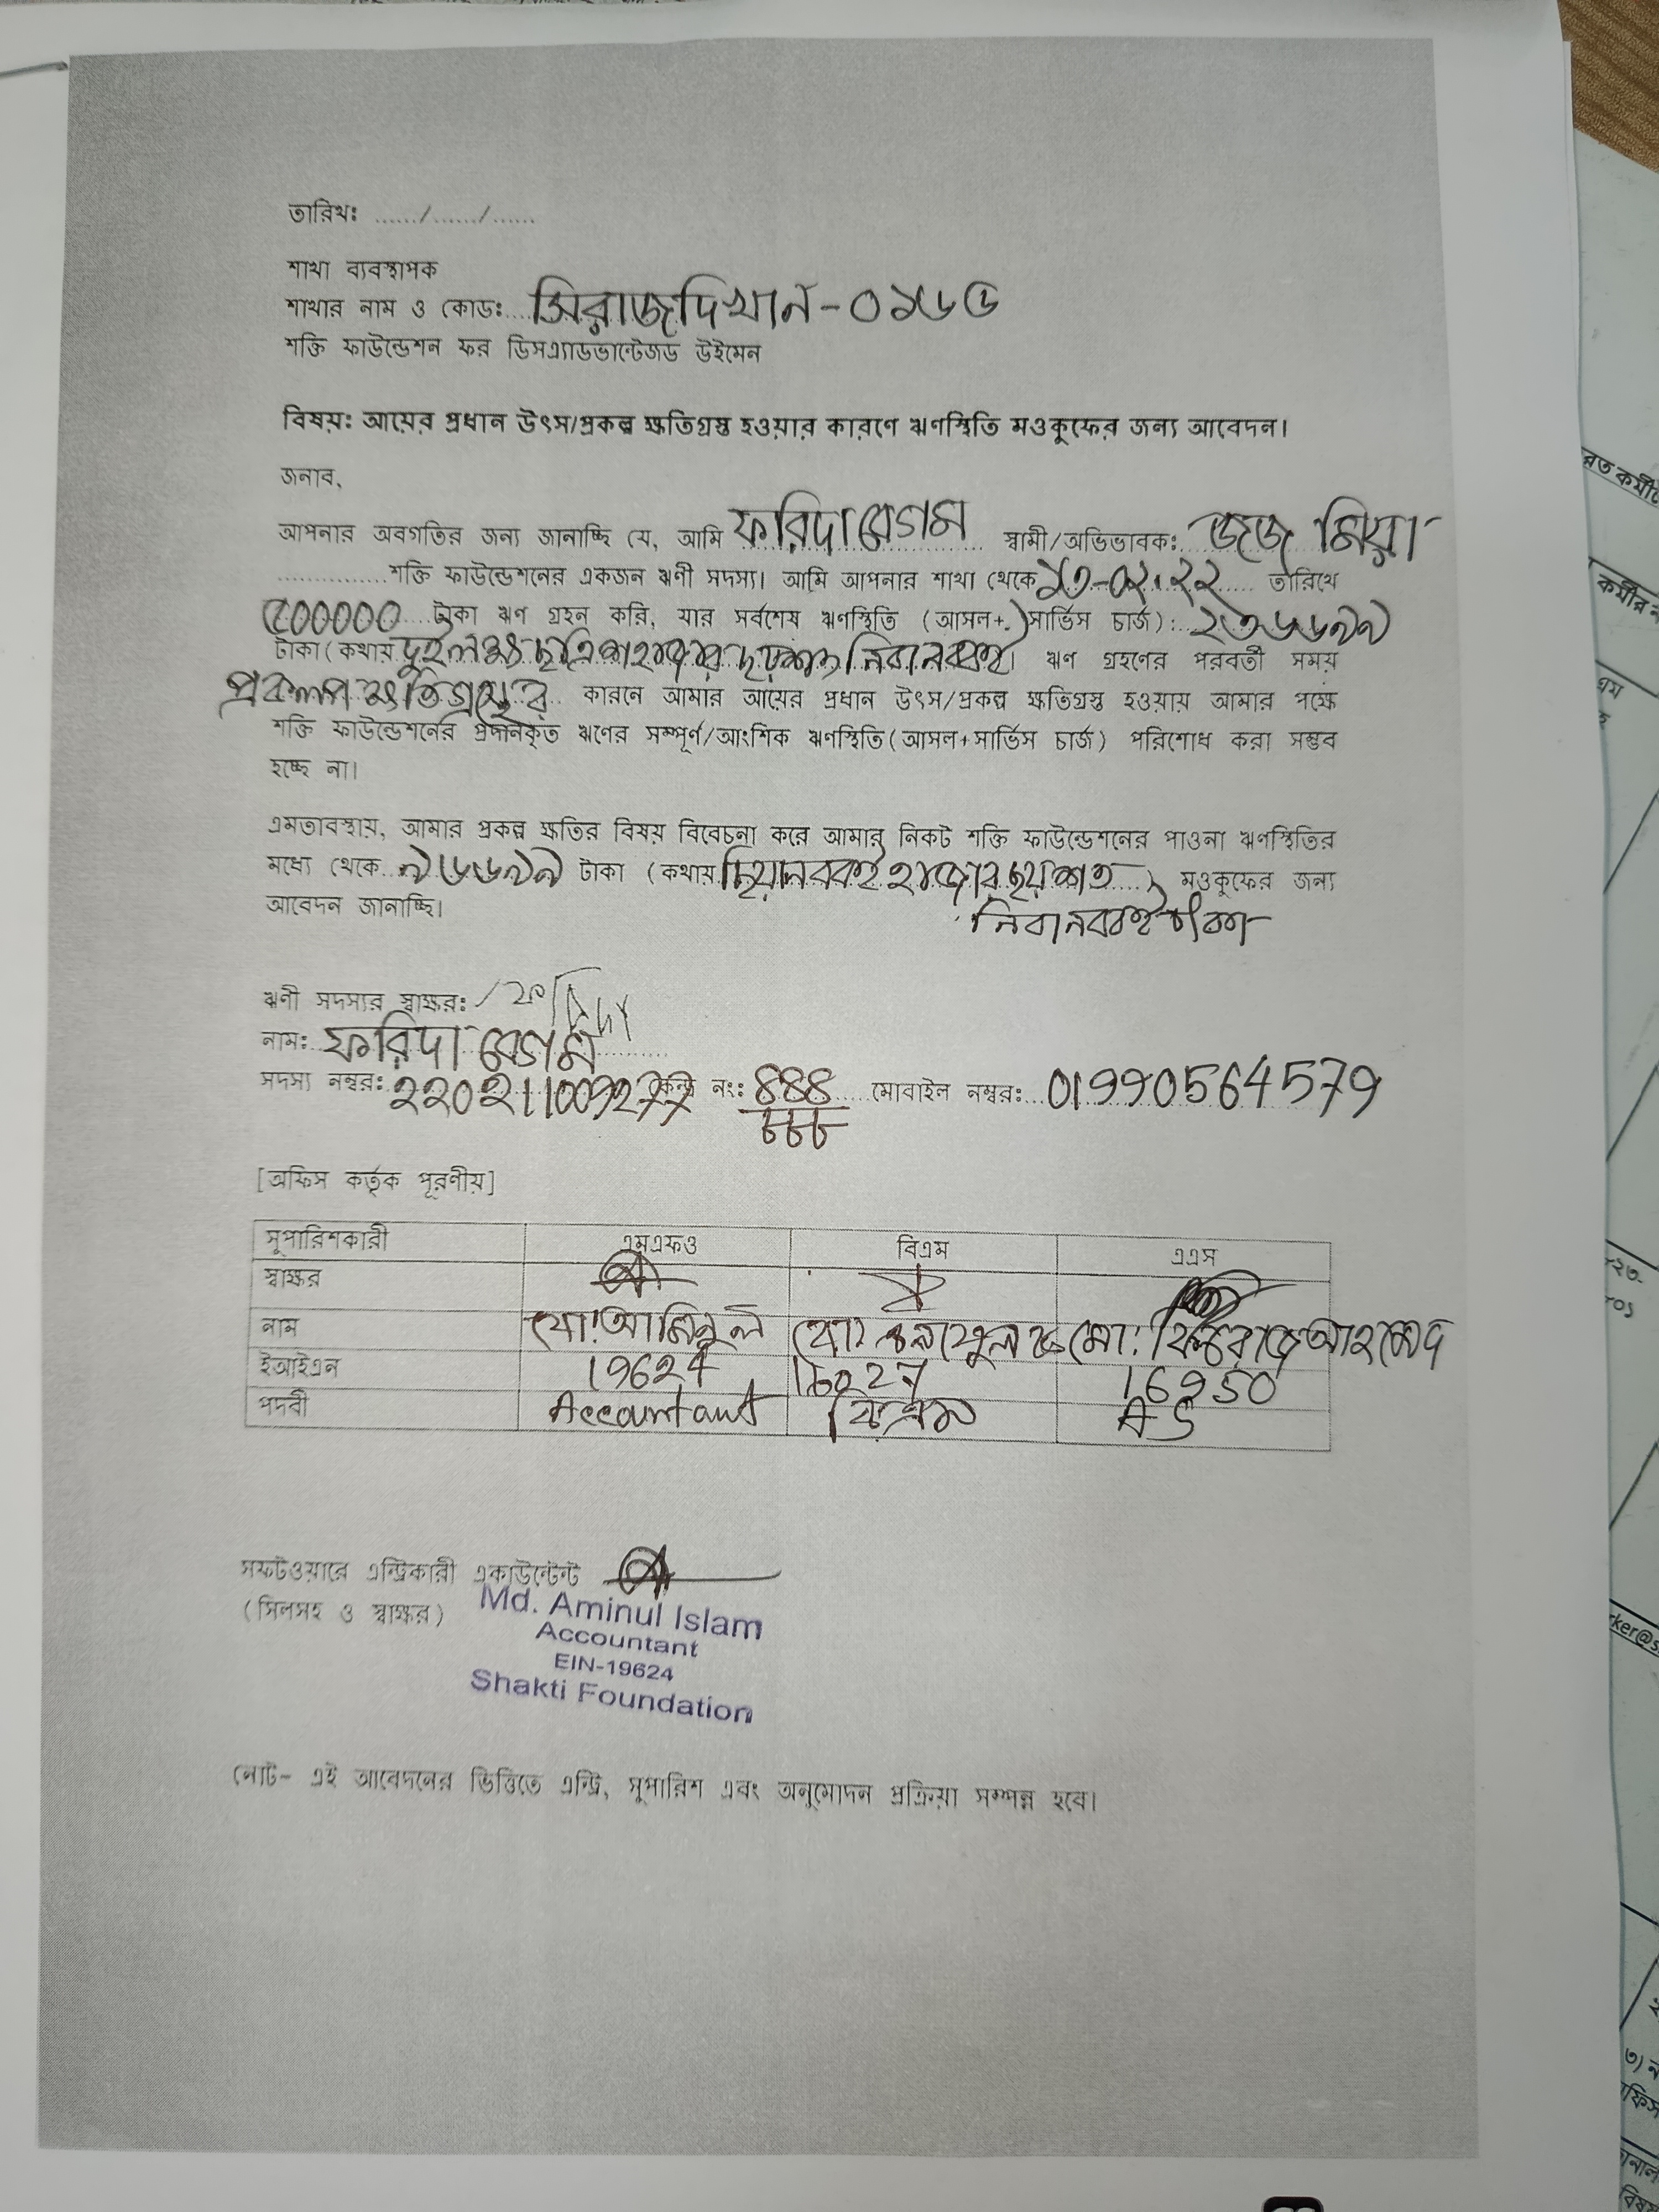 তারিখঃ ....../....../......
শাখা ব্যবস্থাপক
শাখার নাম ও কোডঃ.... সিরাজদিখান-০১৬৬
শক্তি ফাউন্ডেশন ফর ডিসএ্যাডভান্টেজড উইমেন
বিষয়ঃ আয়ের প্রধান উৎস/প্রকল্প ক্ষতিগ্রস্ত হওয়ার কারণে ঋণস্থিতি মওকুফের জন্য আবেদন।
জনাব,
আপনার অবগতির জন্য জানাচ্ছি যে, আমি ফরিদা বেগম স্বামী/অভিভাবক: জজ মিয়া
...............শক্তি ফাউন্ডেশনের একজন ঋণী সদস্য। আমি আপনার শাখা থেকে ১৩-০২.২২ তারিখে
৫০০০০০ টাকা ঋণ গ্রহন করি, যার সর্বশেষ ঋণস্থিতি (আসল+সার্ভিস চার্জ): ২৩৬৬৯৯
টাকা (কথায় দুইলক্ষ ছত্রিশ হাজার ছয়শত নিরানব্বই)। ঋণ গ্রহণের পরবর্তী সময়
প্রকল্প ক্ষতিগ্রস্থের কারনে আমার আয়ের প্রধান উৎস/প্রকল্প ক্ষতিগ্রস্ত হওয়ায় আমার পক্ষে
শক্তি ফাউন্ডেশনের প্রদানকৃত ঋণের সম্পূর্ণ/আংশিক ঋণস্থিতি(আসল+সার্ভিস চার্জ) পরিশোধ করা সম্ভব
হচ্ছে না।
এমতাবস্থায়, আমার প্রকল্প ক্ষতির বিষয় বিবেচনা করে আমার নিকট শক্তি ফাউন্ডেশনের পাওনা ঋণস্থিতির
মধ্যে থেকে ৯৬৬৯৯ টাকা (কথায় ছিয়ানব্বই হাজার ছয়শত ....) মওকুফের জন্য
আবেদন জানাচ্ছি। নিরানব্বই টাকা
ঋণী সদস্যর স্বাক্ষর: ফরিদা
নাম: ফরিদা বেগম
সদস্য নম্বর: কেন্দ্র নং: 888 মোবাইল নম্বর: 01990564579
৮৮৮
[অফিস কর্তৃক পূরণীয়]
সুপারিশকারী এমএফও বিএম এএস
স্বাক্ষর
নাম মো: আমিনুল মো: মো: ফিরোজ আহমেদ
ইআইএন 19624 16950
পদবী Accountant বিএম AS
সফটওয়ারে এন্ট্রিকারী একাউন্টেন্ট
(সিলসহ ও স্বাক্ষর)
Md. Aminul Islam
Accountant
EIN-19624
Shakti Foundation
নোট- এই আবেদনের ভিত্তিতে এন্ট্রি, সুপারিশ এবং অনুমোদন প্রক্রিয়া সম্পন্ন হবে।